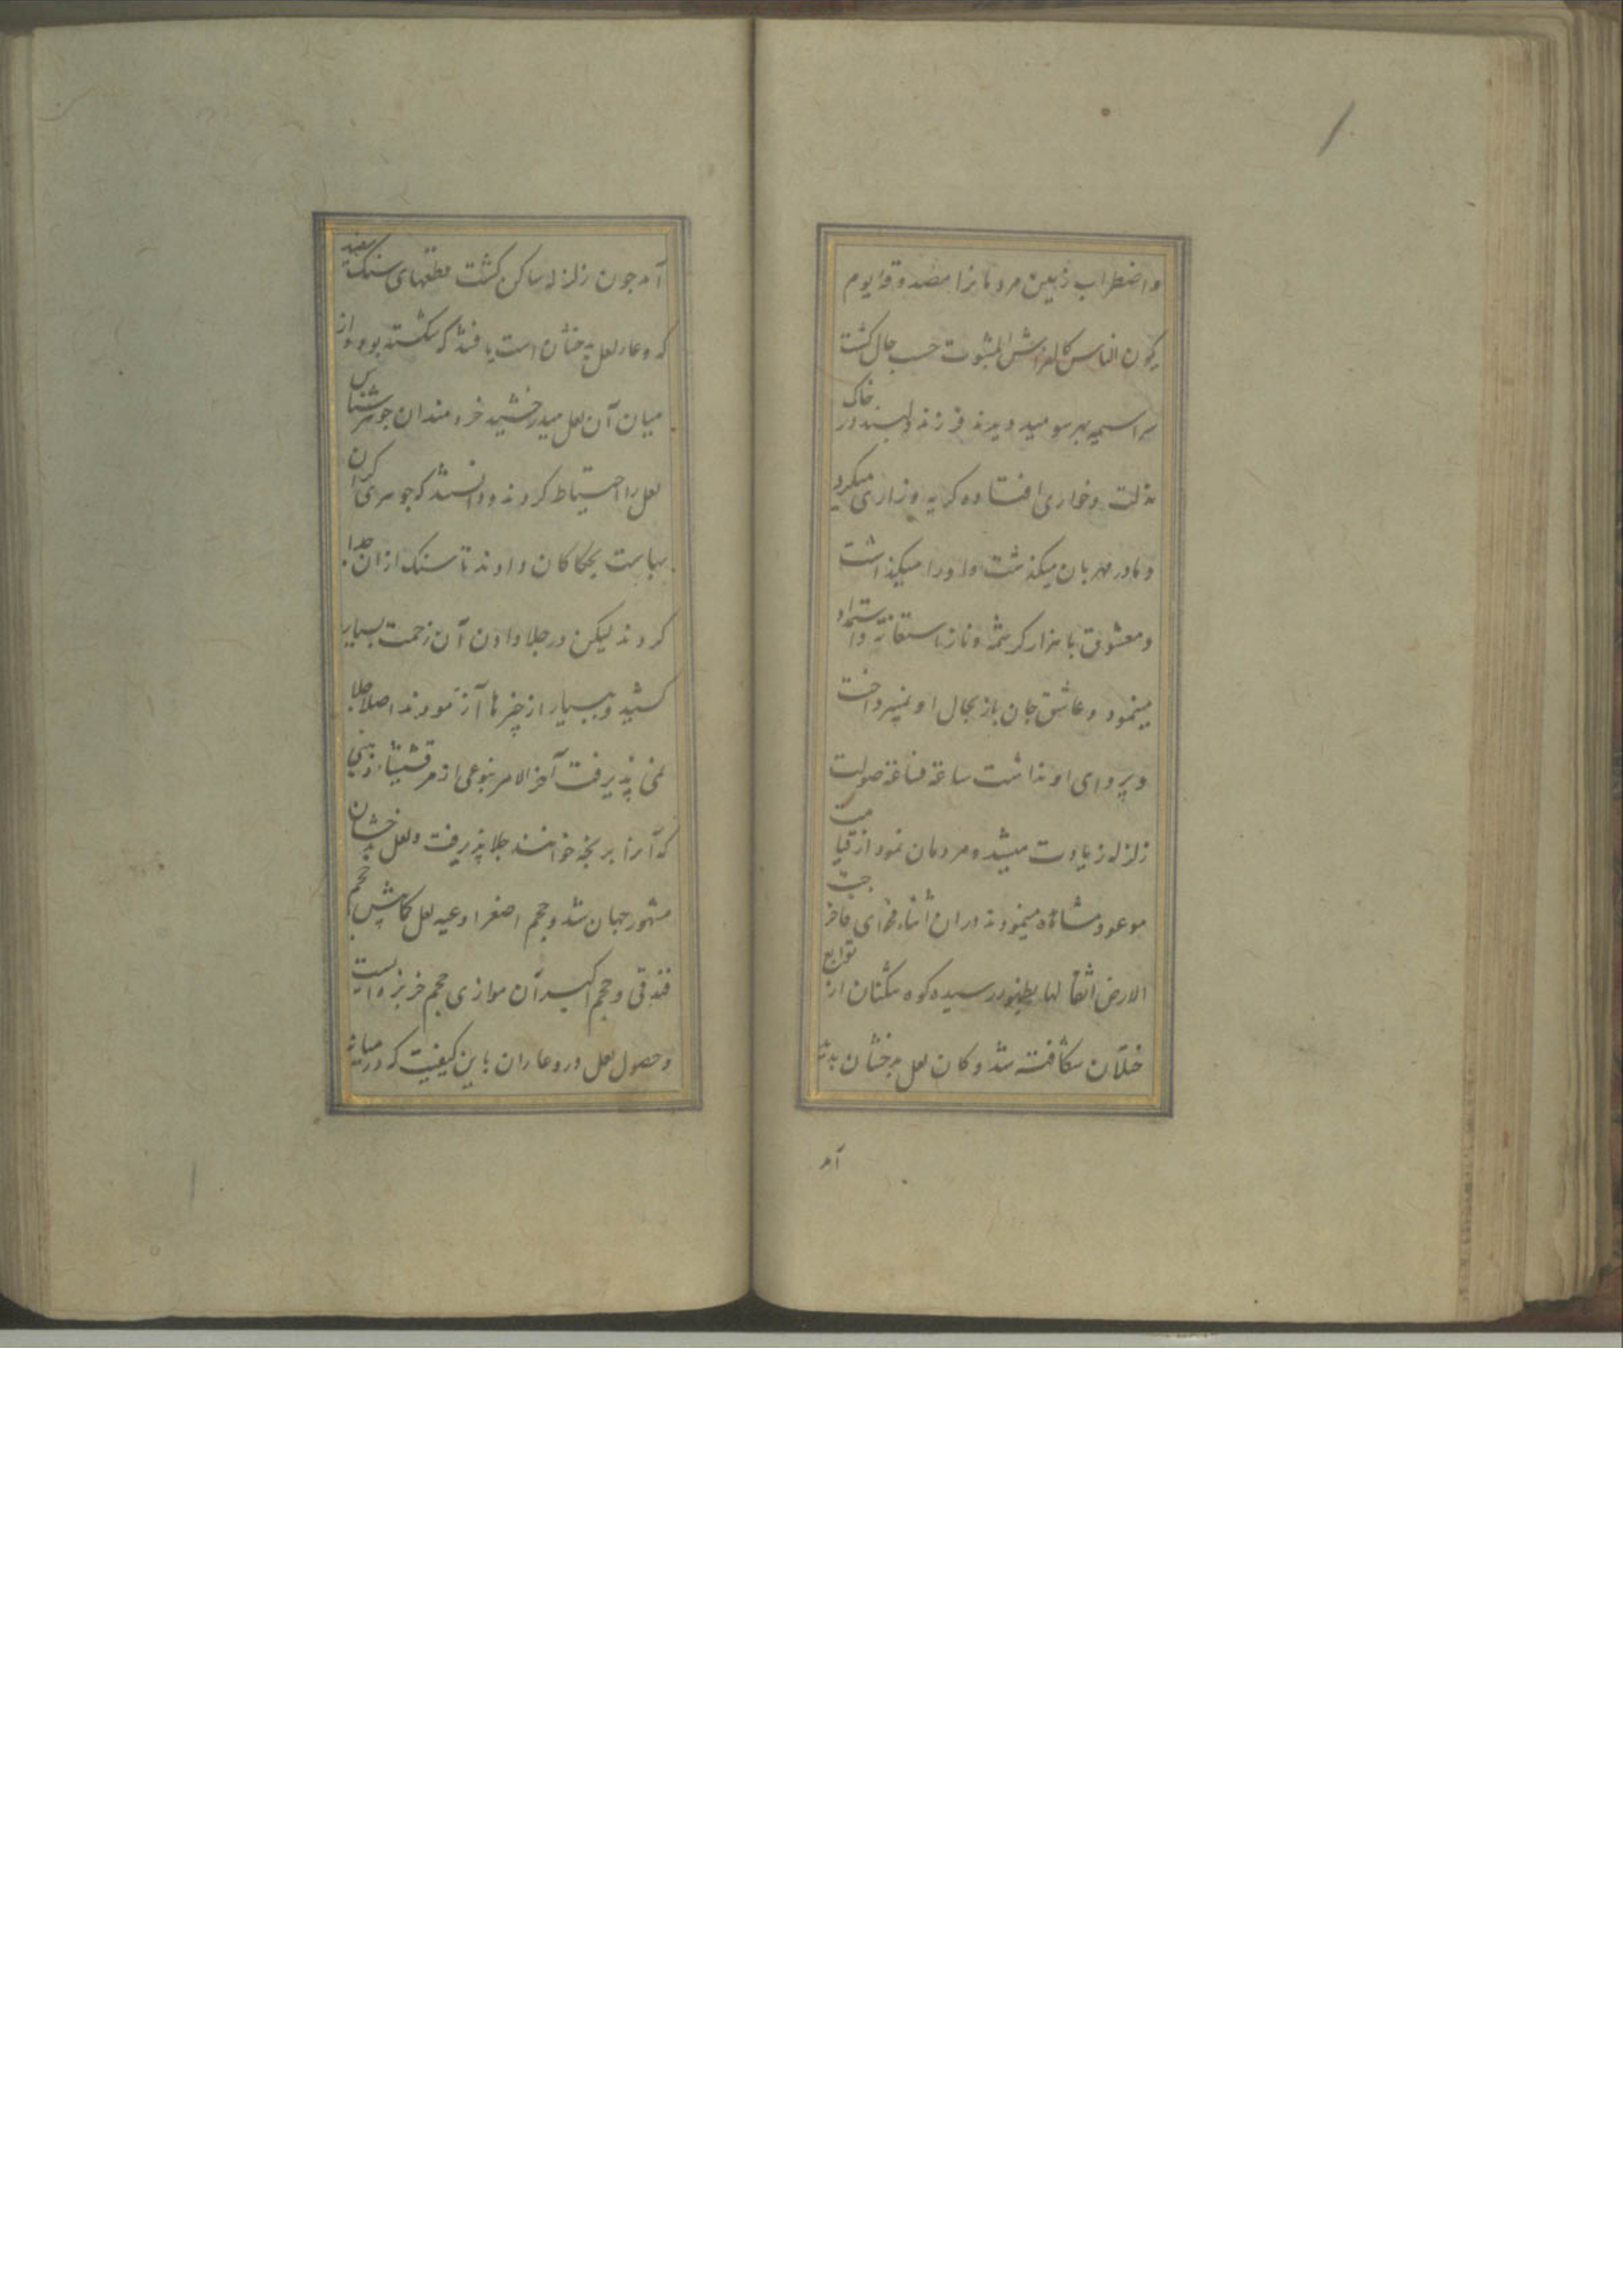 واضطراب زمین مردمانرا مصدوقه ایوم
یکون الناس کالفراش المبثوث حسب حال کشت
سراسیمه بهر سو میدویدند فرزند دلبند در خاک
مذلت و خواری افتاده کریه و زاری میکرد
و مادر مهربان میکذشت و او را میکذاشت
و معشوق با هزار کرشمه و ناز استغاثه و استمداد
مینمود و عاشق جان باز بحال او نمیپرداخت
و پروای او نداشت ساعة فساعة صولت
زلزله زیادت میشد و مردمان نمود از قیامت
موعود مشاهده مینمودند در ان اثنا فحوای فاخرجت
الارض اثقالها بظهور رسیده کوه شکنان از توابع
ختلان شکافته شد و کان لعل بدخشان پدید
آمد
آمد جون زلزله ساکن کشت قطعهای سنک سفید
که وعاء لعل بدخشان است یافتند که شکسته بود و از
میان آن لعل میدرخشید خردمندان جوهر شناس
لعل را احتیاط کردند و دانستند که جوهری کران
بهاست بحکاکان دادند تا سنک از ان جدا
کردند لیکن در جلا دادن آن زحمت بسیار
کشید و بسیار از چیزها آزمودند اصلا جلا
نمی پذیرفت آخر الامر بنوعی از مرقشیشاء ذهبی
که آنرا برنجه خوانند جلا پذیرفت و لعل بدخشان
مشهور جهان شد و حجم اصغر اوعیه لعل کمابیش حجم
فندقی و حجم اکبر آن موازی حجم خربزه ایست
و حصول لعل در وعا ران باین کیفیت که در میانه